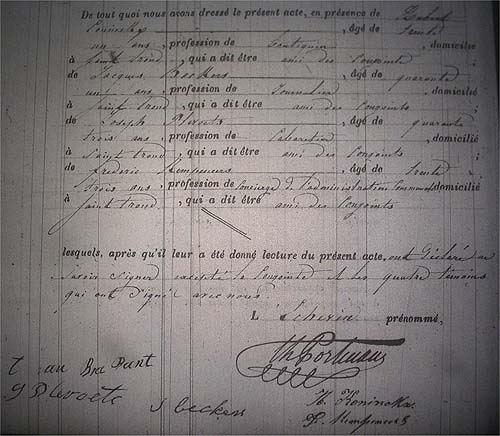 De tout quoi nous avons dressé le présent acte, en présence de Hubert
Coninckx, âgé de trente
un ans, profession de boutiquier, domicilié
à Saint trond, qui a dit être ami des Conjoints
de Jacques Beckers, âgé de quarante
un ans, profession de Journalier, domicilié
à Saint trond, qui a dit être ami des Conjoints;
de Joseph, âgé de quarante
trois ans, profession de Cabaretier, domicilié
à Saint trond, qui a dit être ami des Conjoints
de frederic, âgé de trente
trois ans, profession de Concierge de l'administration Communale, domicilié
à Saint trond, qui a dit être ami des Conjoints
lesquels, après qu'il leur a été donné lecture du présent acte, ont déclaré ne
savoir signer excepté la Conjointe et les quatre témoins
qui ont signé avec nous.
L'Echevin prénommé,
van Bra Pant
J Beckers
H. Koninckx